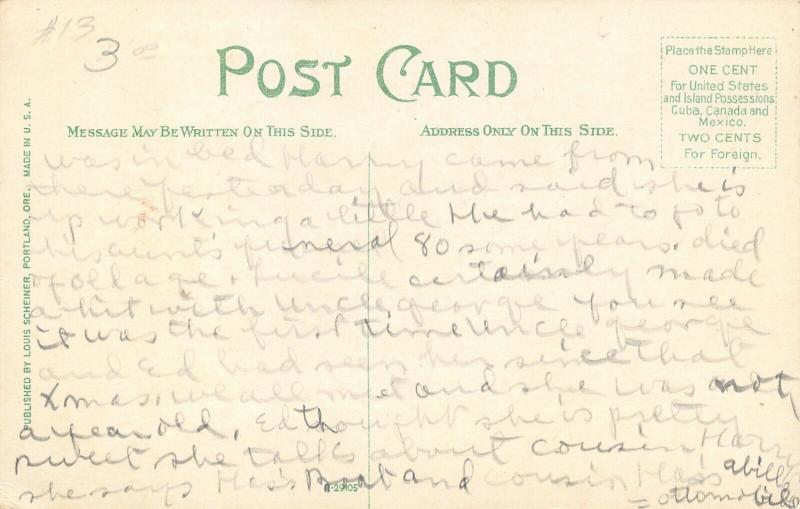 #13
3.00
POST CARD
MESSAGE MAY BE WRITTEN ON THIS SIDE.
ADDRESS ONLY ON THIS SIDE.
Place the Stamp Here
ONE CENT
For United States
and Island Possessions
Cuba, Canada and
Mexico.
TWO CENTS
For Foreign.
PUBLISHED BY LOUIS SCHEINER, PORTLAND, ORE. MADE IN U.S.A.
was in bed Harry came from
there yesterday and said she is
up working a little He had to go to
his aunt's funeral 80 some years. died
of old age. Lucile certainly made
a hit with Uncle george you see
it was the first time Uncle george
and Ed had seen her since that
Xmas, we all met and she was not
a year old, Ed thought she is pretty
sweet she talks about cousin Harry
she says Has's Boat and cousin Has's
= ottomobile
R-29105